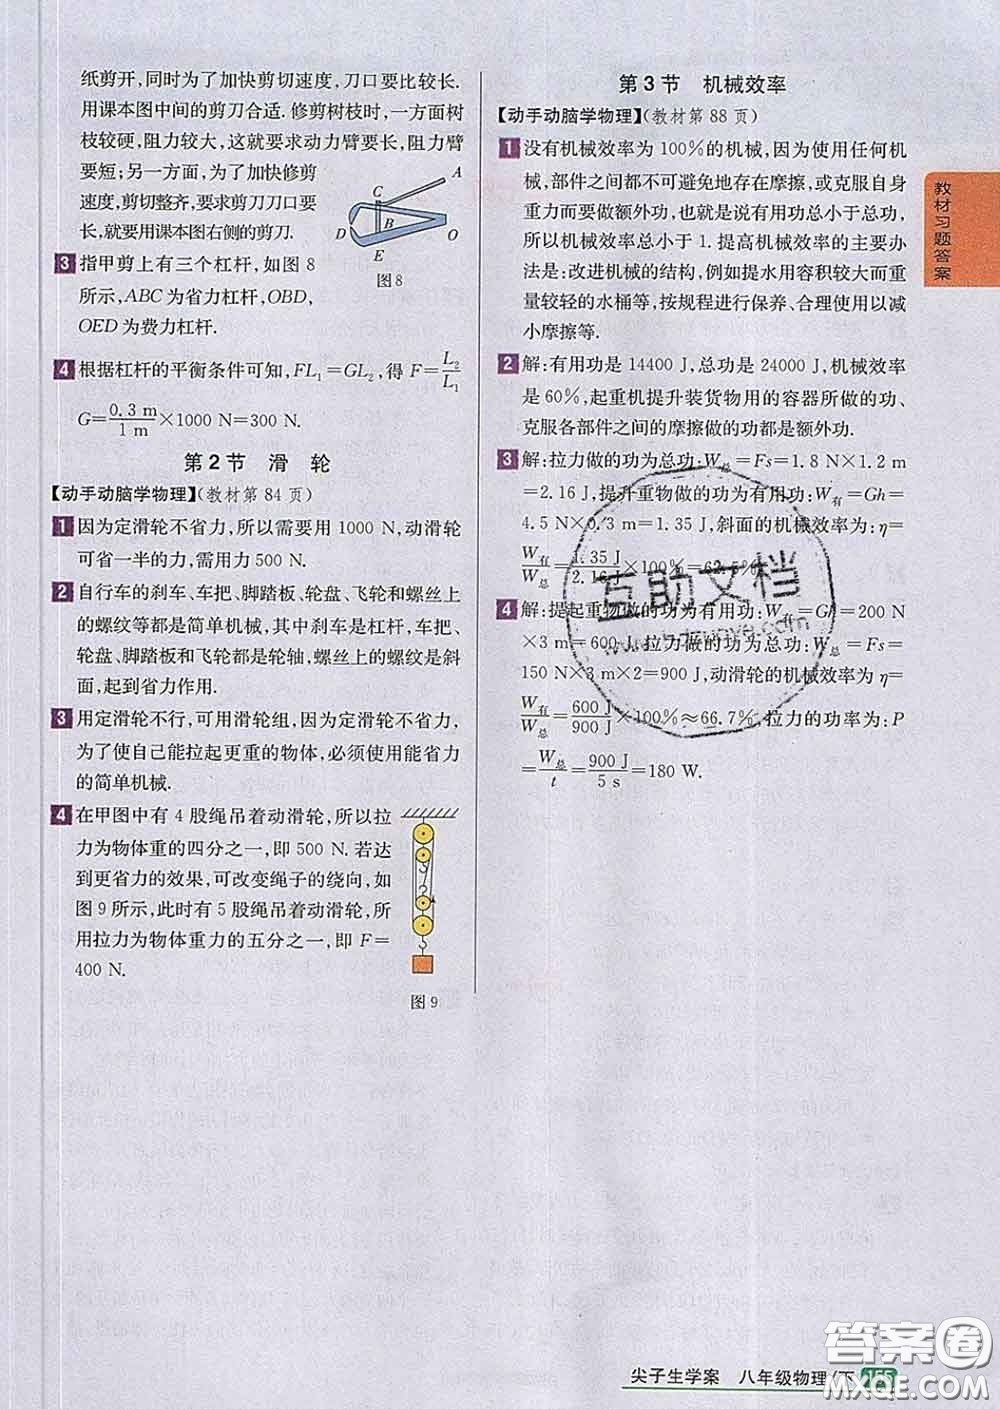 纸剪开,同时为了加快剪切速度,刀口要比较长.
用课本图中间的剪刀合适. 修剪树枝时,一方面树
枝较硬,阻力较大,这就要求动力臂要长,阻力臂
要短;另一方面,为了加快修剪
速度,剪切整齐,要求剪刀刀口要
长,就要用课本图右侧的剪刀.
A
C
D
B
O
E
图8
3 指甲剪上有三个杠杆,如图 8
所示,ABC为省力杠杆,OBD,
OED为费力杠杆.
4 根据杠杆的平衡条件可知,FL₁=GL₂,得 F=L₂/L₁
G=0.3 m/1 m×1000 N=300 N.
第2节 滑 轮
【动手动脑学物理】(教材第84页)
1 因为定滑轮不省力,所以需要用 1000 N,动滑轮
可省一半的力,需用力 500 N.
2 自行车的刹车、车把、脚踏板、轮盘、飞轮和螺丝上
的螺纹等都是简单机械,其中刹车是杠杆,车把、
轮盘、脚踏板和飞轮都是轮轴,螺丝上的螺纹是斜
面,起到省力作用.
3 用定滑轮不行,可用滑轮组,因为定滑轮不省力,
为了使自己能拉起更重的物体,必须使用能省力
的简单机械.
4 在甲图中有 4 股绳吊着动滑轮,所以拉
力为物体重的四分之一,即 500 N. 若达
到更省力的效果,可改变绳子的绕向,如
图9所示,此时有 5 股绳吊着动滑轮,所
用拉力为物体重力的五分之一,即 F=
400 N.
图9
第3节 机械效率
【动手动脑学物理】(教材第88页)
1 没有机械效率为 100%的机械,因为使用任何机
械,部件之间都不可避免地存在摩擦,或克服自身
重力而要做额外功,也就是说有用功总小于总功,
所以机械效率总小于 1. 提高机械效率的主要办
法是:改进机械的结构,例如提水用容积较大而质
量较轻的水桶等,按规程进行保养、合理使用以减
小摩擦等.
2 解:有用功是 14400 J,总功是 24000 J,机械效率
是 60%,起重机提升装货物用的容器所做的功、
克服各部件之间的摩擦做的功都是额外功.
3 解:拉力做的功为总功:W总=Fs=1.8 N×1.2 m
=2.16 J,提升重物做的功为有用功:W有=Gh=
4.5 N×0.3 m=1.35 J,斜面的机械效率为:η=
W有/W总=1.35 J/2.16 J×100%=62.5%.
4 解:提起重物做的功为有用功:W有=Gh=200 N
×3 m=600 J,拉力做的功为总功:W总=Fs=
150 N×3 m×2=900 J,动滑轮的机械效率为 η=
W有/W总=600 J/900 J×100%≈66.7%,拉力的功率为:P
=W总/t=900 J/5 s=180 W.
教材习题答案
互助文档
尖子生学案 八年级物理(下) 155
答案圈
MXQE.COM